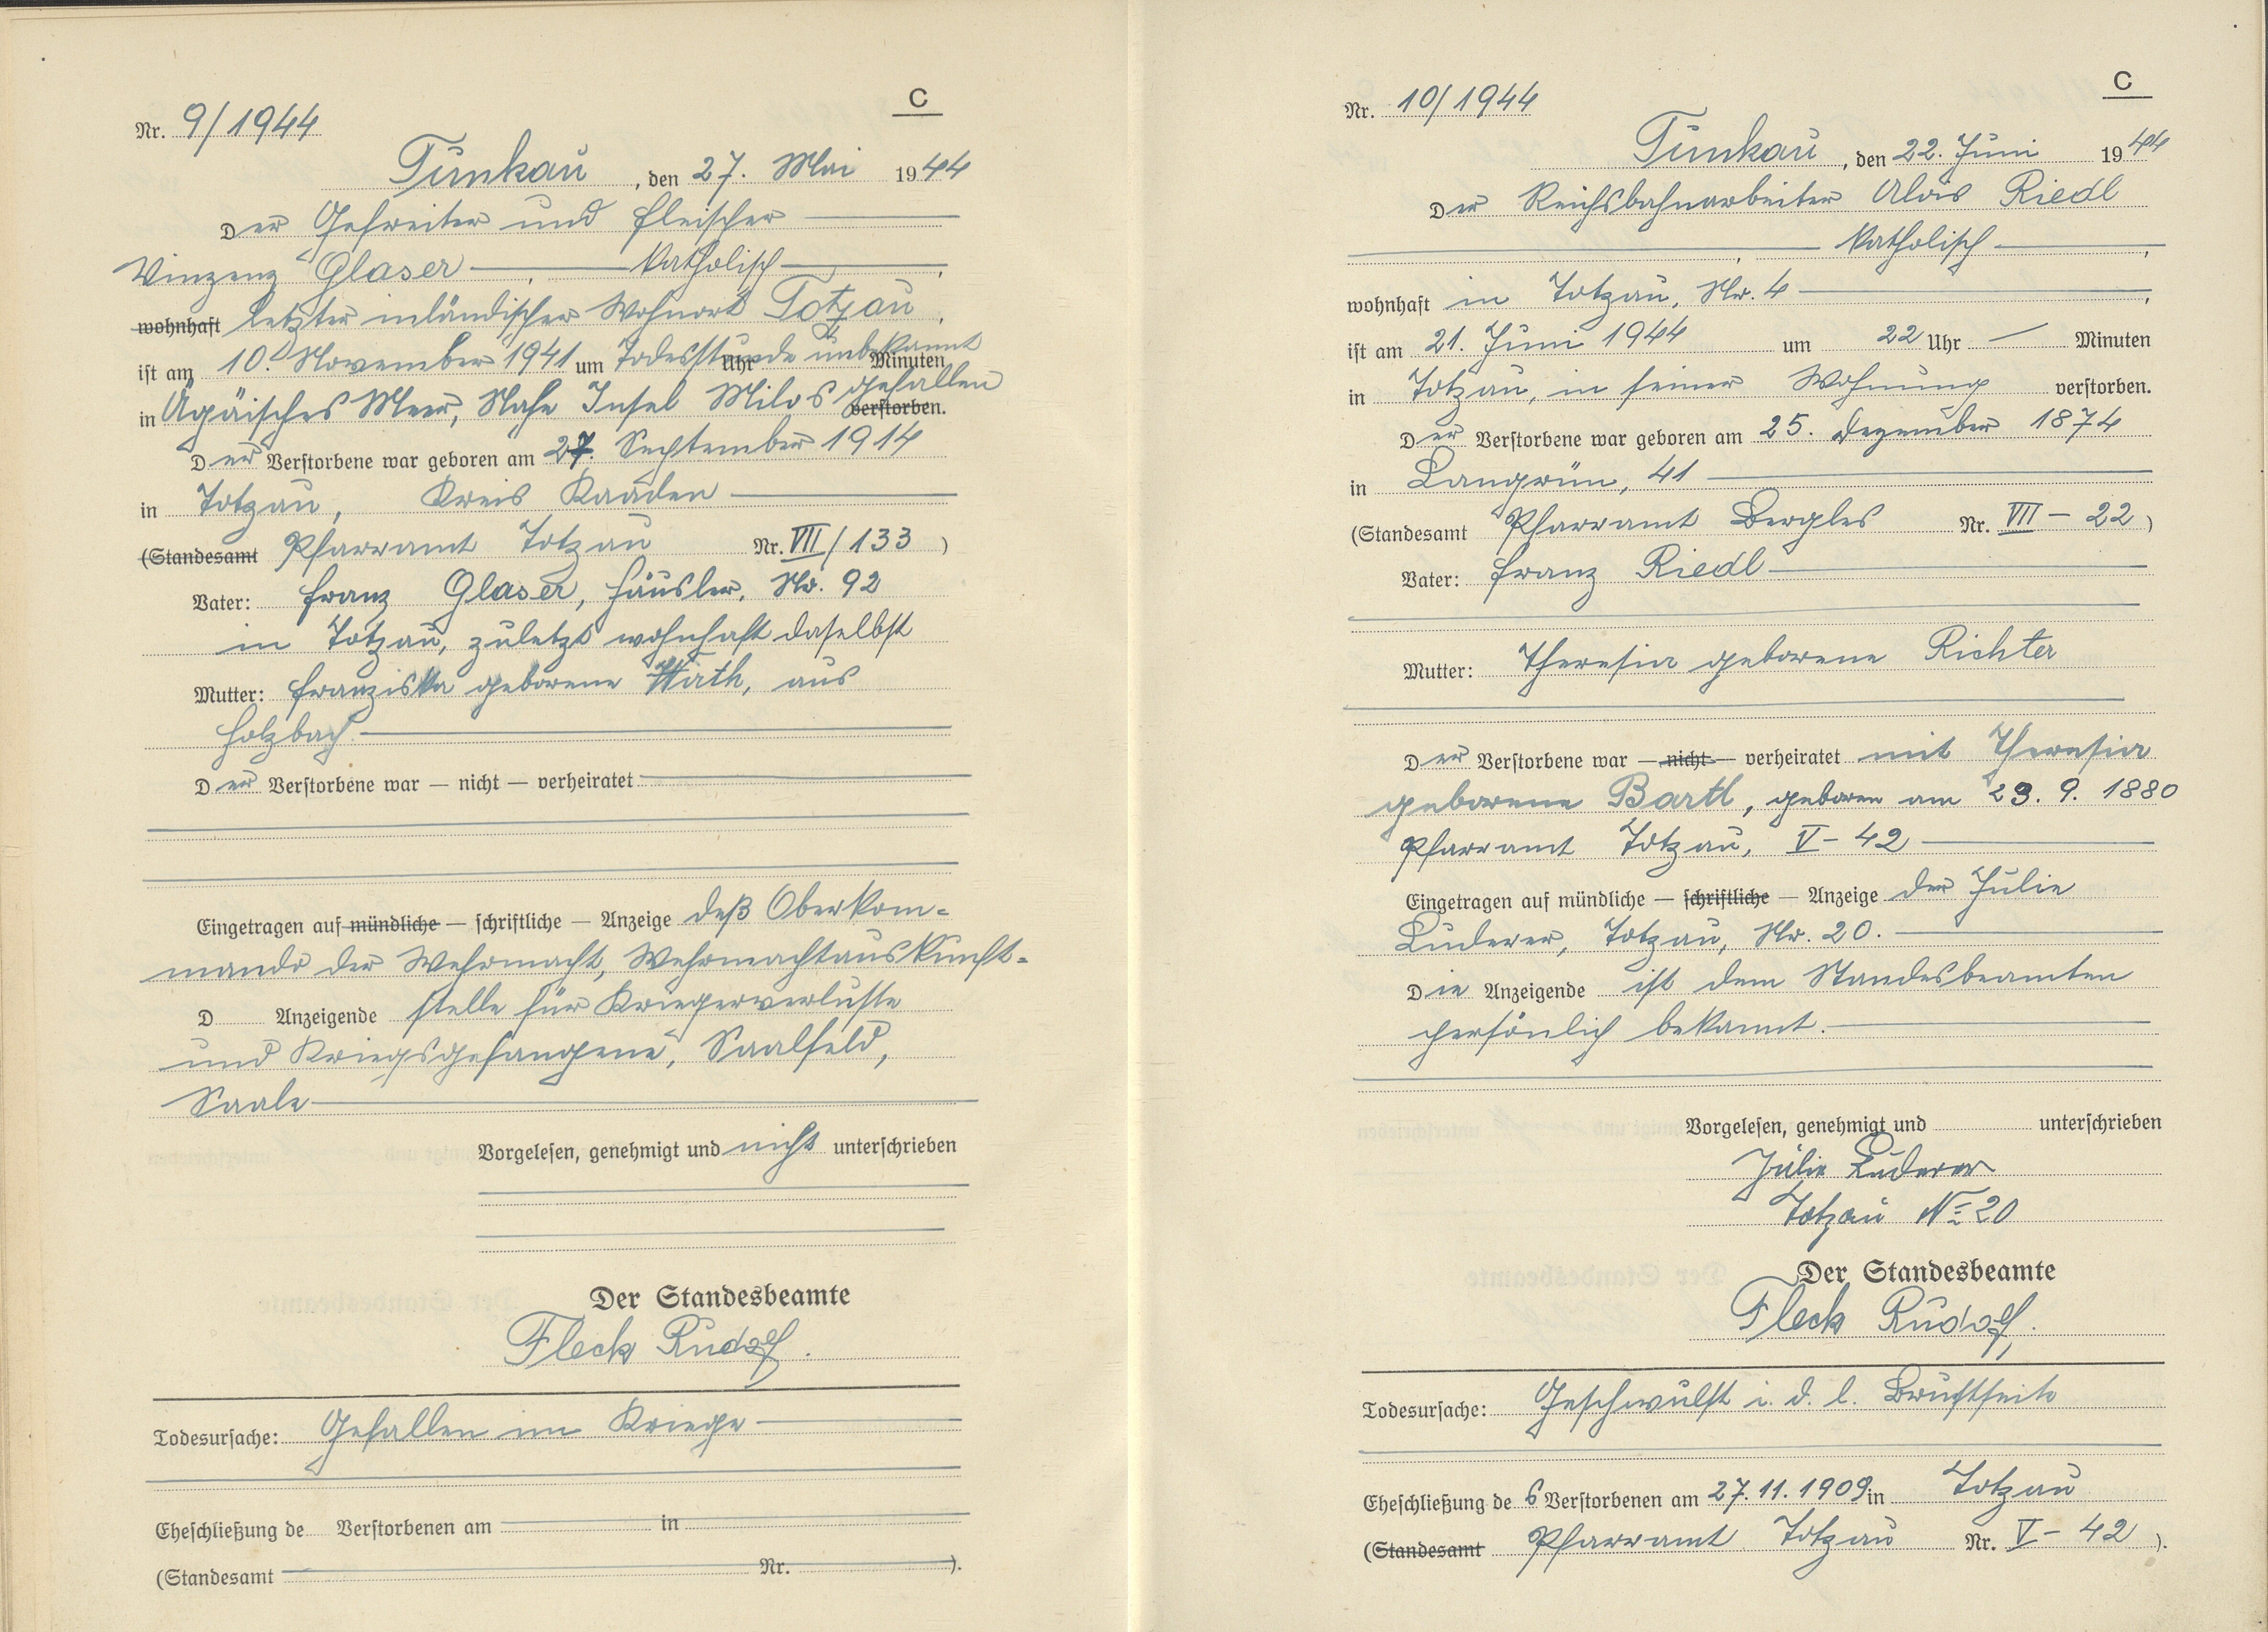 C
Nr. 9/1944
Tunkau, den 27. Mai 1944
Der Gefreiter und Fleischer
Vinzenz Glaser, katholisch,
wohnhaft letzter inländischer Wohnort Totzau,
ist am 10. November 1941 um Todesstunde unbekannt Uhr Minuten
in Ägäisches Meer, Nahe Insel Milos gefallen verstorben.
Der Verstorbene war geboren am 27. September 1914
in Totzau, Kreis Kaaden
(Standesamt Pfarramt Totzau Nr. VII/133)
Vater: Franz Glaser, Häusler, Nr. 92
in Totzau, zuletzt wohnhaft daselbst
Mutter: Franziska geborene Wirth, aus
Holzbach
Der Verstorbene war — nicht — verheiratet
Eingetragen auf mündliche — schriftliche — Anzeige deß Oberkom-
mando der Wehrmacht, Wehrmachtauskunft-
D Anzeigende stelle für Kriegerverluste
und Kriegsgefangene, Saalfeld,
Saale
Vorgelesen, genehmigt und nicht unterschrieben
Der Standesbeamte
Fleck Rudolf.
Todesursache: Gefallen im Kriege
Eheschließung de Verstorbenen am in
(Standesamt Nr. ).
C
Nr. 10/1944
Tunkau, den 22. Juni 1944
Der Reichsbahnarbeiter Alois Riedl
, katholisch,
wohnhaft in Totzau, Nr. 4,
ist am 21. Juni 1944 um 22 Uhr — Minuten
in Totzau, in seiner Wohnung verstorben.
Der Verstorbene war geboren am 25. Dezember 1874
in Langgrün, 41
(Standesamt Pfarramt Bergles Nr. VII – 22)
Vater: Franz Riedl
Mutter: Theresia geborene Richter
Der Verstorbene war — nicht — verheiratet mit Theresia
geborene Bartl, geboren am 23. 9. 1880
Pfarramt Totzau, V – 42
Eingetragen auf mündliche — schriftliche — Anzeige der Julie
Luderer, Totzau, Nr. 20.
Die Anzeigende ist dem Standesbeamten
persönlich bekannt.
Vorgelesen, genehmigt und unterschrieben
Julie Luderer
Totzau No 20
Der Standesbeamte
Fleck Rudolf.
Todesursache: Geschwulst i. d. l. Brustseite
Eheschließung des Verstorbenen am 27. 11. 1909 in Totzau
(Standesamt Pfarramt Totzau Nr. V – 42).